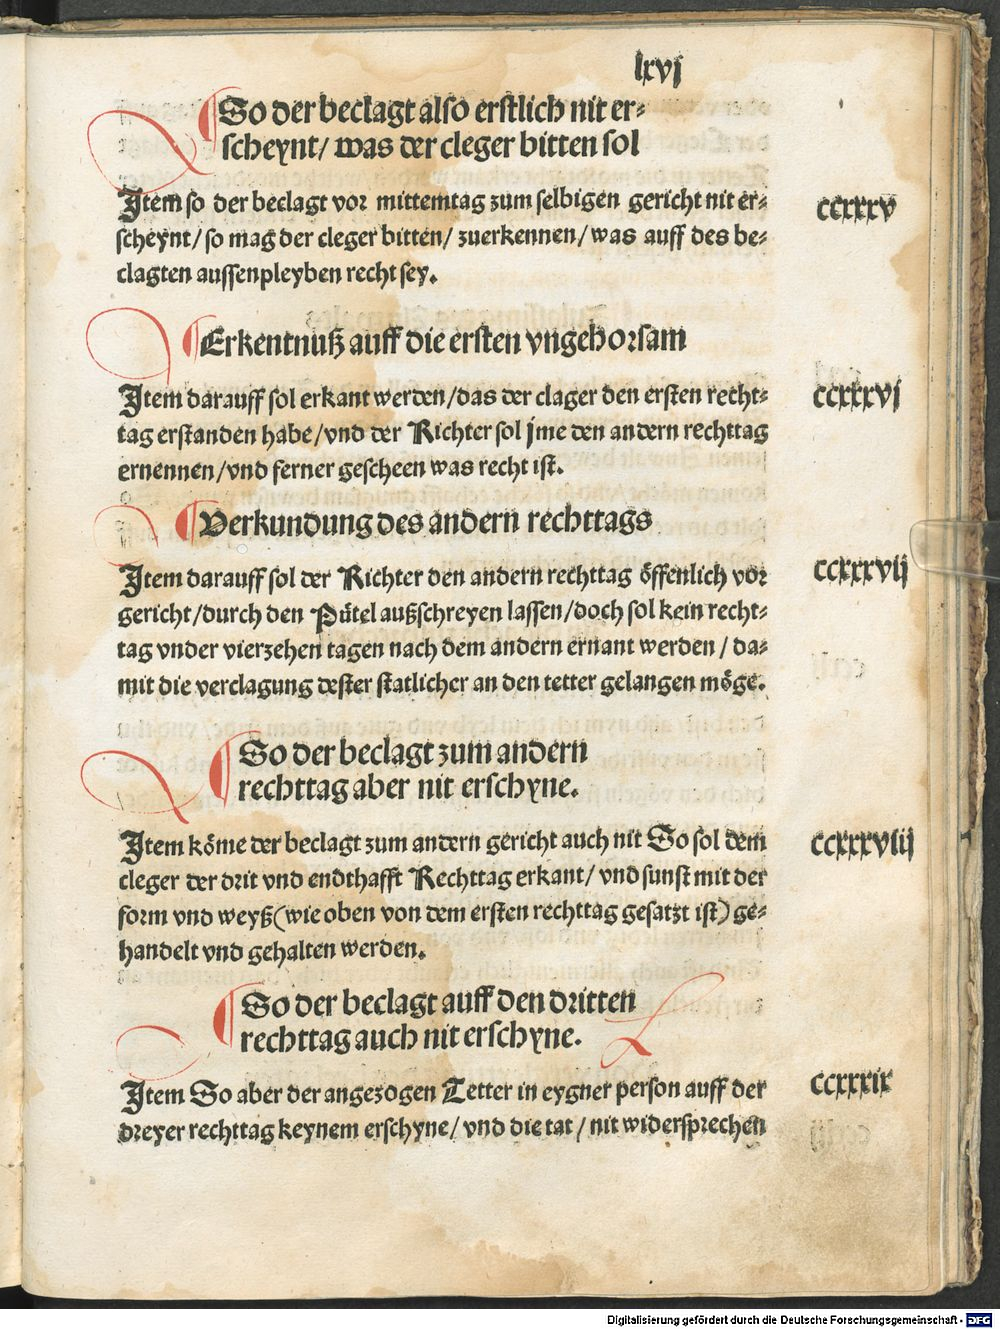 lxvj
So der beclagt also erstlich nit er⸗
scheynt/ was der cleger bitten sol
Jtem so der beclagt vor mittemtag zum selbigen gericht nit er⸗
scheynt/ so mag der cleger bitten/ zuerkennen/ was auff des be⸗
clagten aussenpleyben recht sey.
ccxxxv
Erkentnuß auff die ersten vngehorsam
Jtem darauff sol erkant werden/ das der clager den ersten recht⸗
tag erstanden habe/ vnd der Richter sol jme den andern rechttag
ernennen/ vnd ferner gescheen was recht ist.
ccxxxvj
Verkundung des andern rechttags
Jtem darauff sol der Richter den andern rechttag öffenlich vor
gericht/ durch den Pütel außschreyen lassen/ doch sol kein recht⸗
tag vnder vierzehen tagen nach dem andern ernant werden/ da⸗
mit die verclagung dester statlicher an den tetter gelangen möge.
ccxxxvij
So der beclagt zum andern
rechttag aber nit erschyne.
Jtem köme der beclagt zum andern gericht auch nit So sol dem
cleger der drit vnd endthafft Rechttag erkant/ vnd sunst mit der
form vnd weyß (wie oben von dem ersten rechttag gesatzt ist) ge⸗
handelt vnd gehalten werden.
ccxxxviij
So der beclagt auff den dritten
rechttag auch nit erschyne.
Jtem So aber der angezogen Tetter in eygner person auff der
dreyer rechttag keynem erschyne/ vnd die tat/ nit widersprechen
ccxxxix
Digitalisierung gefördert durch die Deutsche Forschungsgemeinschaft - DFG